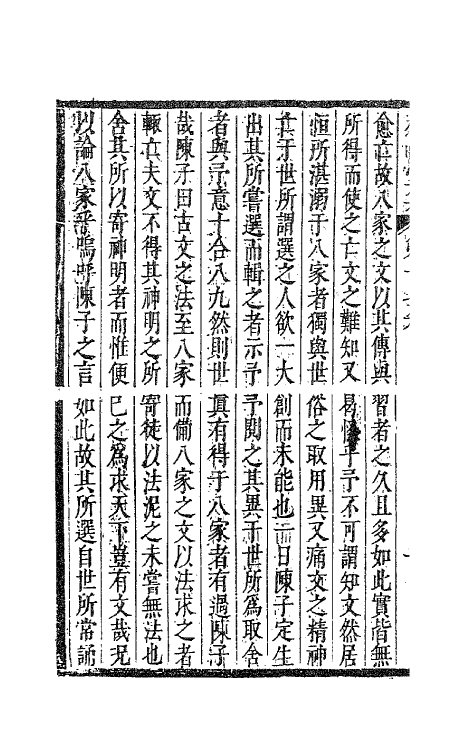 愈亡故八家之文以其傳與習者之久且多如此實皆無
所得而使之亡文之難知又易惜乎予不可謂知文然居
恒所湛溺于八家者獨與世俗之取用異又痛文之精神
亡于世所謂選之人欲一大創而未能也一日陳子定生
出其所嘗選而輯之者示予予閱之其異于世所為取舍
者與予意十合八九然則世真有得于八家者有過陳子
哉陳子曰古文之法至八家而備八家之文以法求之者
輒亡夫文不得其神明之所寄徒以法泥之未嘗無法也
舍其所以寄神明者而惟便己之為求天下豈有文哉况
以論八家乎嗚呼陳子之言如此故其所選自世所常誦